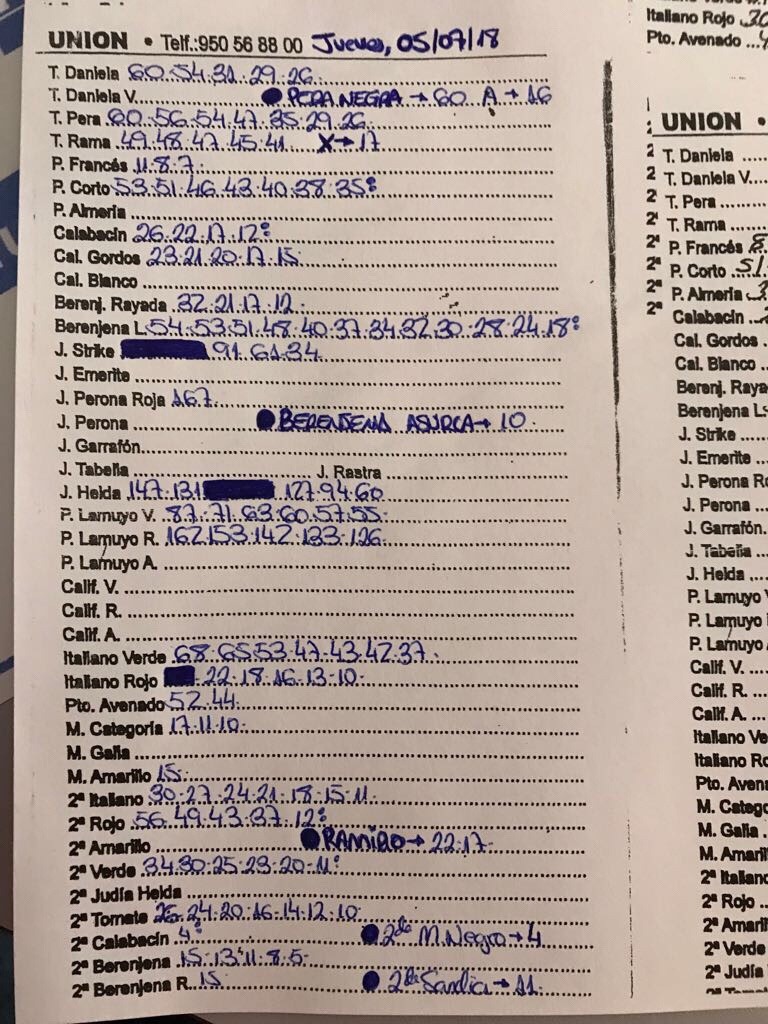 UNION • Telf.:950 56 88 00 Jueves, 05/07/18
T. Daniela 60.54.31.29.26
T. Daniela V. ● PERA NEGRA → 60 A → 16
T. Pera 60.56.54.47.35.29.26
T. Rama 49.48.47.45.41 X → 17
P. Francés 11.8.7
P. Corto 53.51.46.43.40.38.35
P. Almería
Calabacín 26.22.17.12
Cal. Gordos 23.21.20.17.15
Cal. Blanco
Berenj. Rayada 32.21.17.12
Berenjena L. 54.53.51.48.40.37.34.32.30.28.24.18
J. Strike 91.61.34
J. Emerite
J. Perona Roja 167
J. Perona ● BERENJENA ASURCA → 10
J. Garrafón
J. Tabella J. Rastra
J. Helda 147.131 127.94.60
P. Lamuyo V. 87.71.63.60.57.55
P. Lamuyo R. 162.153.142.133.126
P. Lamuyo A.
Calif. V.
Calif. R.
Calif. A.
Italiano Verde 68.65.53.47.43.42.37
Italiano Rojo 22.18.16.13.10
Pto. Avenado 52.44
M. Categoría 17.11.10
M. Galia
M. Amarillo 15
2ª Italiano 30.27.24.21.18.15.11
2ª Rojo 56.49.43.37.12
2ª Amarillo ● RAMIRO → 22.17
2ª Verde 34.30.25.23.20.11
2ª Judía Helda
2ª Tomate 26.24.20.16.14.12.10
2ª Calabacín 4 ● 2da M. Negro → 4
2ª Berenjena 15.13.11.8.5
2ª Berenjena R. 15 ● 2da Sandía → 11
Italiano Rojo 30
Pto. Avenado
UNION •
T. Daniela
T. Daniela V.
T. Pera
T. Rama
P. Francés 8
P. Corto 51
P. Almería 3
Calabacín
Cal. Gordos
Cal. Blanco
Berenj. Raya
Berenjena L
J. Strike
J. Emerite
J. Perona R
J. Perona
J. Garrafón
J. Tabella
J. Helda
P. Lamuyo
P. Lamuyo
P. Lamuyo
Calif. V.
Calif. R.
Calif. A.
Italiano Ve
Italiano Ro
Pto. Aven
M. Catego
M. Galia
M. Amaril
2ª Italiano
2ª Rojo
2ª Amari
2ª Verde
2ª Judía